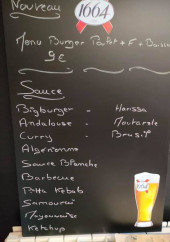 Nouveau
1664
Menu Burger Patat + F + Boisson
9€
Sauce
Bigburger - Harissa
Andalouse - Moutarde
Curry - Brésil
Algérienne
Sauce Blanche
Barbecue
Pitta Kebab
Samourai
Mayonnaise
Ketchup
1664